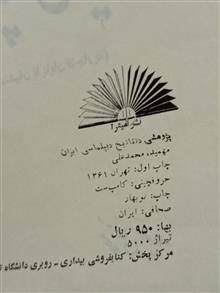 نشر میترا
پژوهشی در تاریخ دیپلماسی ایران
مهمید، محمدعلی
چاپ اول: تهران ۱۳۶۱
حروفچینی: کامپ‌ست
چاپ: نوبهار
صحافی: ایران
بها: ۹۵۰ ریال
تیراژ ۵۰۰۰
مرکز پخش: کتابفروشی بیداری - روبروی دانشگاه